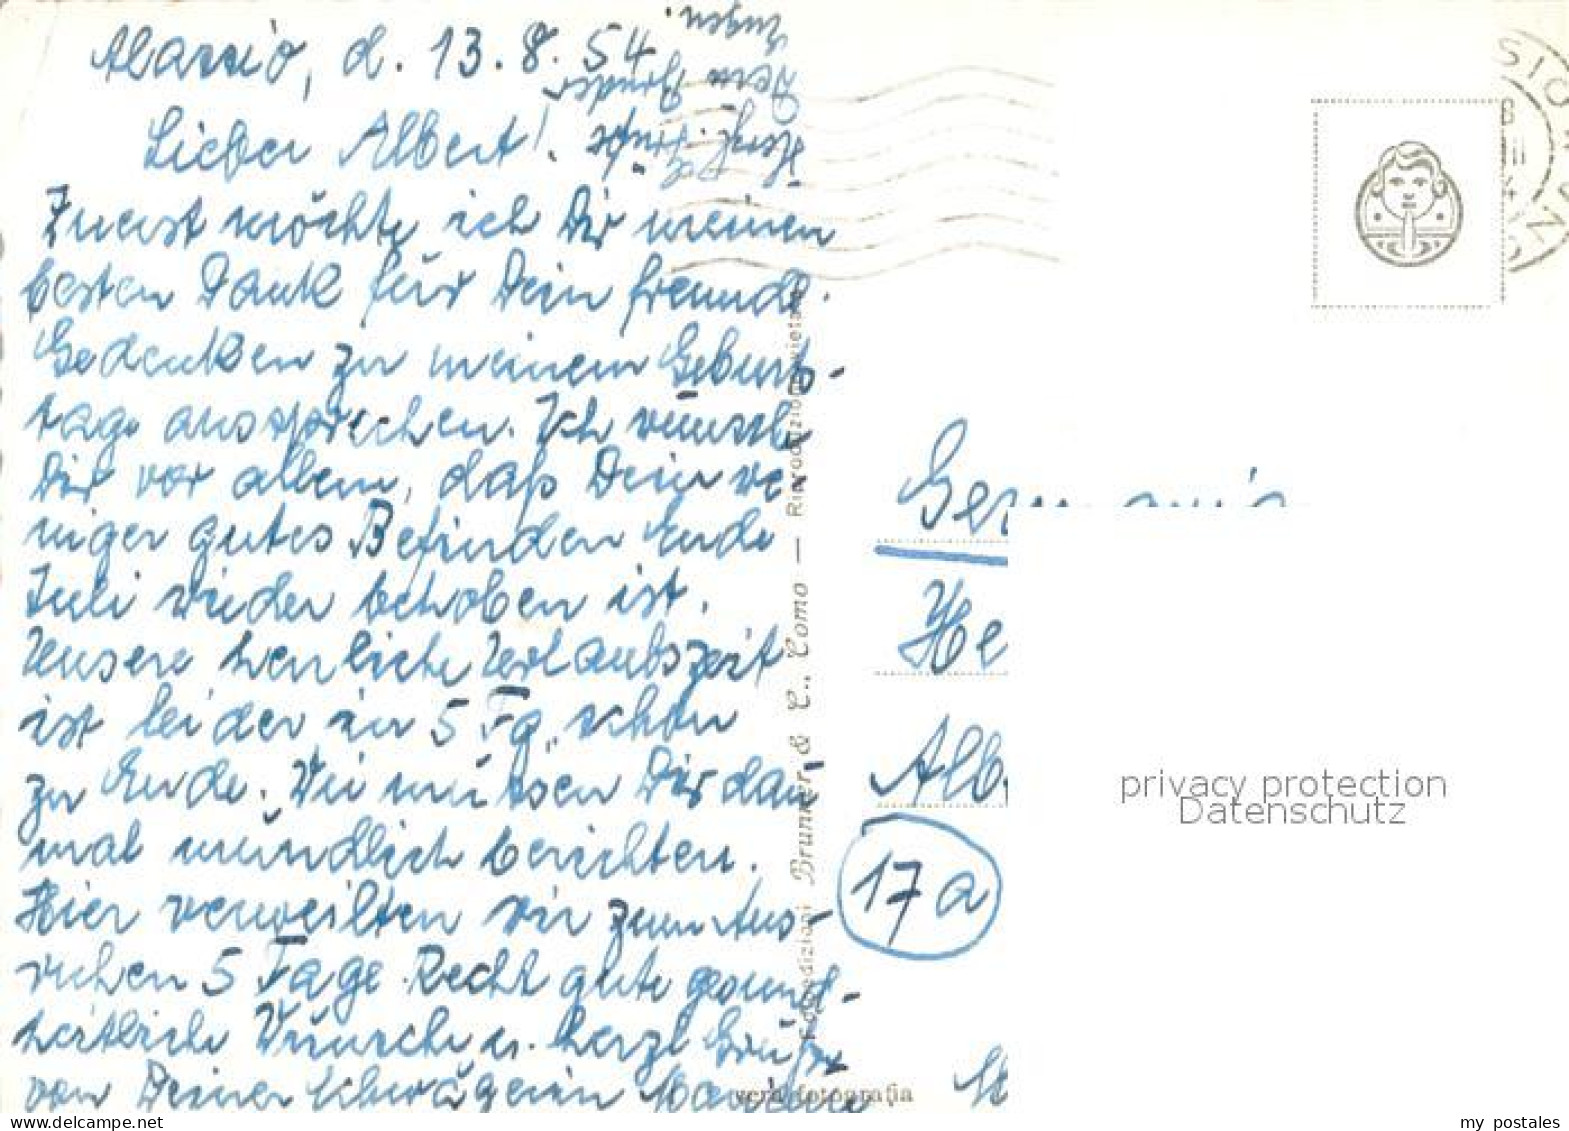 Alassio, d. 13. 8. 54
Lieber Albert!
Zuerst möchte ich Dir meinen
besten Dank für Dein freundl.
Gedenken zu meinem Geburts-
tage aussprechen. Ich wünsche
Dir vor allem, daß Dein we-
niger gutes Befinden Ende
Juli wieder behoben ist.
Unsere herrliche Urlaubszeit
ist leider in 5 Tg. schon
zu Ende. Wir müssen Dir dann
mal mündlich berichten.
Hier verweilten wir zum Aus-
ruhen 5 Tage. Recht gute gesund-
heitliche Wünsche u. herzl. Grüße
von Deiner Schwägerin
Herzl. Grüße
Dein Bruder
Fotoedizioni Brunner & C., Como — Riproduzione vietata
vera fotografia
Germania
He
Alb
17a
privacy protection
Datenschutz
my postales